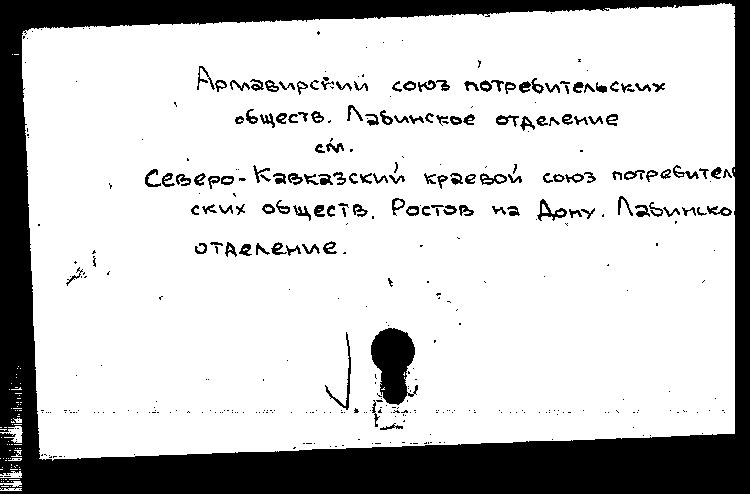 Армавирский союз потребительских
обществ. Лабинское отделение
см.
Северо-Кавказский краевой союз потребитель
ских обществ. Ростов на Дону. Лабинско
отделение.